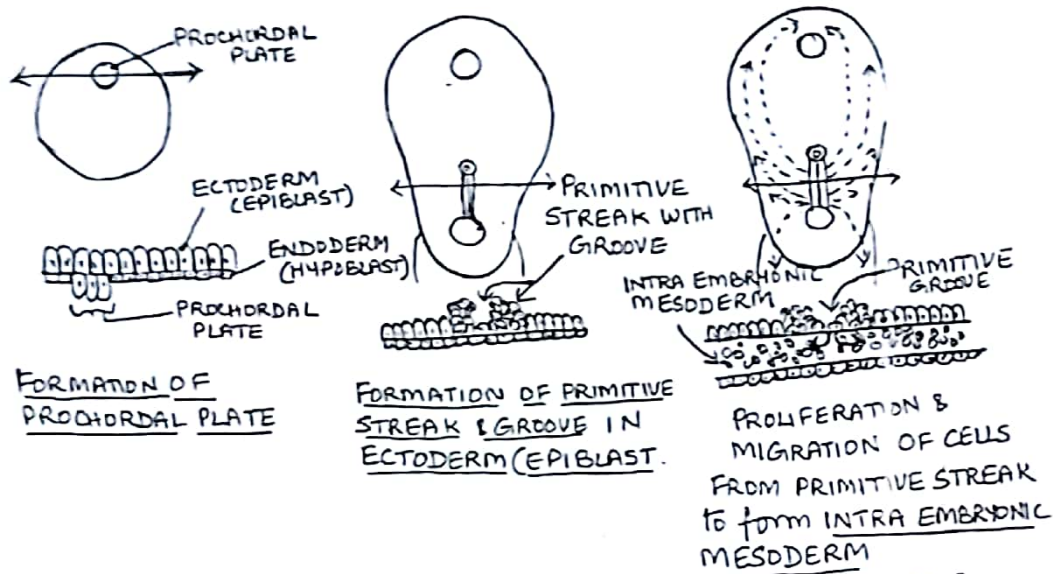 PROCHORDAL
PLATE
ECTODERM
(EPIBLAST)
ENDODERM
(HYPOBLAST)
PROCHORDAL
PLATE
FORMATION OF
PROCHORDAL PLATE
PRIMITIVE
STREAK WITH
GROOVE
FORMATION OF PRIMITIVE
STREAK & GROOVE IN
ECTODERM (EPIBLAST.
INTRA EMBRYONIC
MESODERM
PRIMITIVE
GROOVE
PROLIFERATION &
MIGRATION OF CELLS
FROM PRIMITIVE STREAK
to form INTRA EMBRYONIC
MESODERM